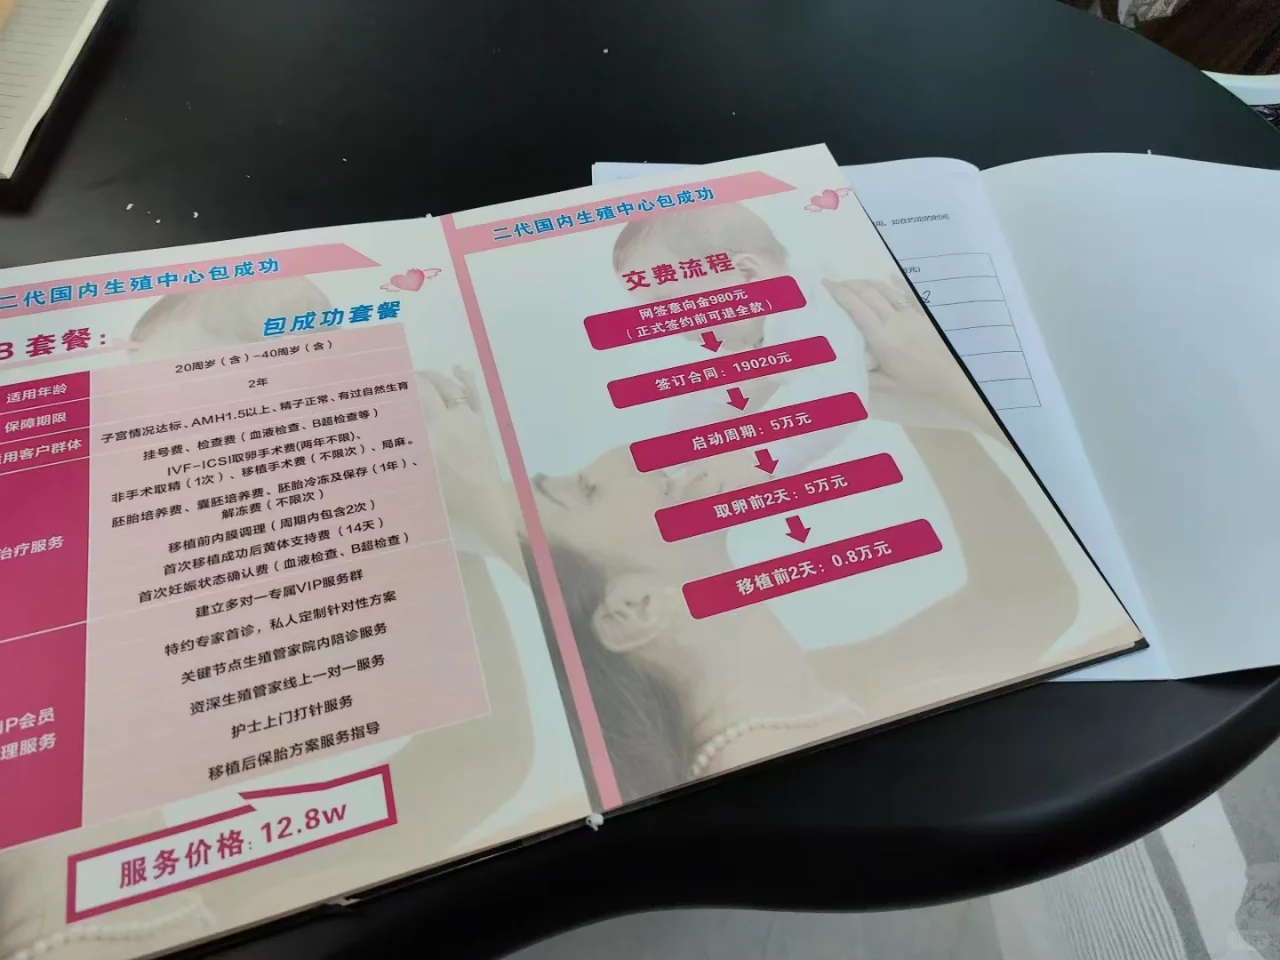 二代国内生殖中心包成功
B 套餐：
包成功套餐
适用年龄
20周岁（含）-40周岁（含）
保障期限
2年
适用客户群体
子宫情况达标、AMH1.5以上、精子正常、有过自然生育
治疗服务
挂号费、检查费（血液检查、B超检查等）
IVF-ICSI取卵手术费(两年不限)、
非手术取精（1次）、移植手术费（不限次）、局麻。
胚胎培养费、囊胚培养费、胚胎冷冻及保存（1年）、
解冻费（不限次）
移植前内膜调理（周期内包含2次）
首次移植成功后黄体支持费（14天）
首次妊娠状态确认费（血液检查、B超检查）
IP会员
理服务
建立多对一专属VIP服务群
特约专家首诊，私人定制针对性方案
关键节点生殖管家院内陪诊服务
资深生殖管家线上一对一服务
护士上门打针服务
移植后保胎方案服务指导
服务价格：12.8w
二代国内生殖中心包成功
交费流程
网签意向金980元
（正式签约前可退全款）
签订合同：19020元
启动周期：5万元
取卵前2天：5万元
移植前2天：0.8万元